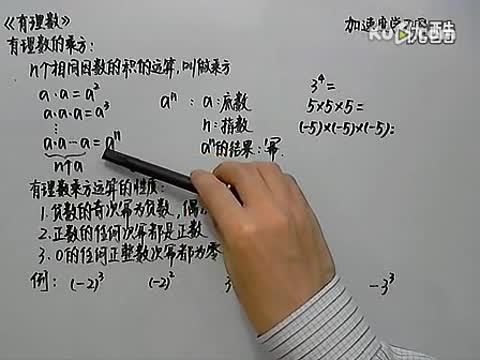 《有理数》
加速度学习网
有理数的乘方:
n个相同因数的积的运算,叫做乘方
a·a=a²
a·a·a=a³
⋮
a·a…a=aⁿ
n个a
aⁿ: a:底数
n:指数
aⁿ的结果:幂.
3⁴=
5×5×5=
(-5)×(-5)×(-5)=
有理数乘方运算的性质:
1.负数的奇次幂为负数,偶
2.正数的任何次幂都是正数
3.0的任何正整数次幂都为零
例: (-2)³ (-2)² -3³